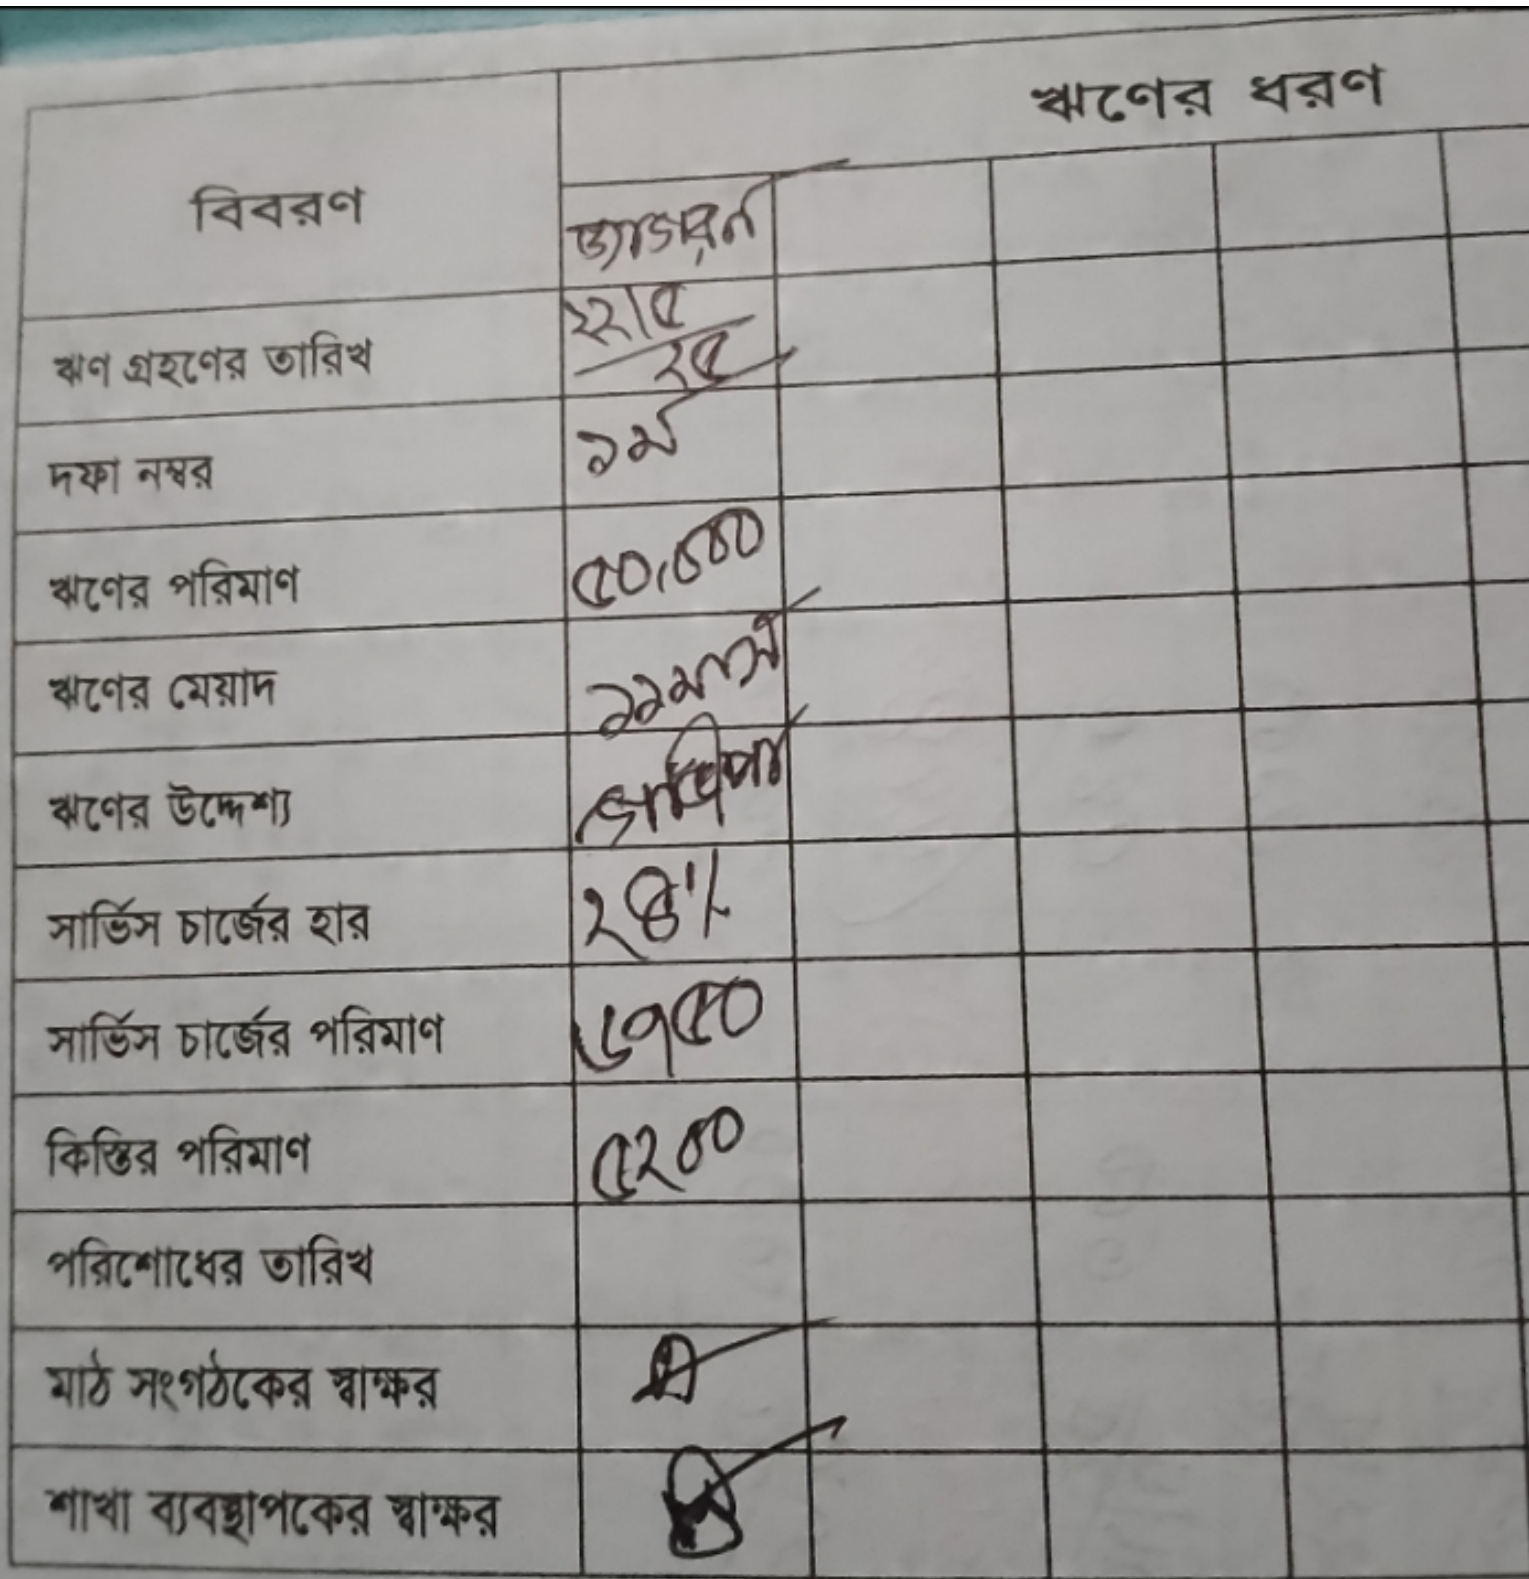 ঋণের ধরণ
বিবরণ
ঋণ গ্রহণের তারিখ ২২/৫
২৫
দফা নম্বর ১ম
ঋণের পরিমাণ ৫০,০০০
ঋণের মেয়াদ ১১মাস
ঋণের উদ্দেশ্য
সার্ভিস চার্জের হার ২৪%
সার্ভিস চার্জের পরিমাণ ৬৭৫০
কিস্তির পরিমাণ ৫২০০
পরিশোধের তারিখ
মাঠ সংগঠকের স্বাক্ষর
শাখা ব্যবস্থাপকের স্বাক্ষর